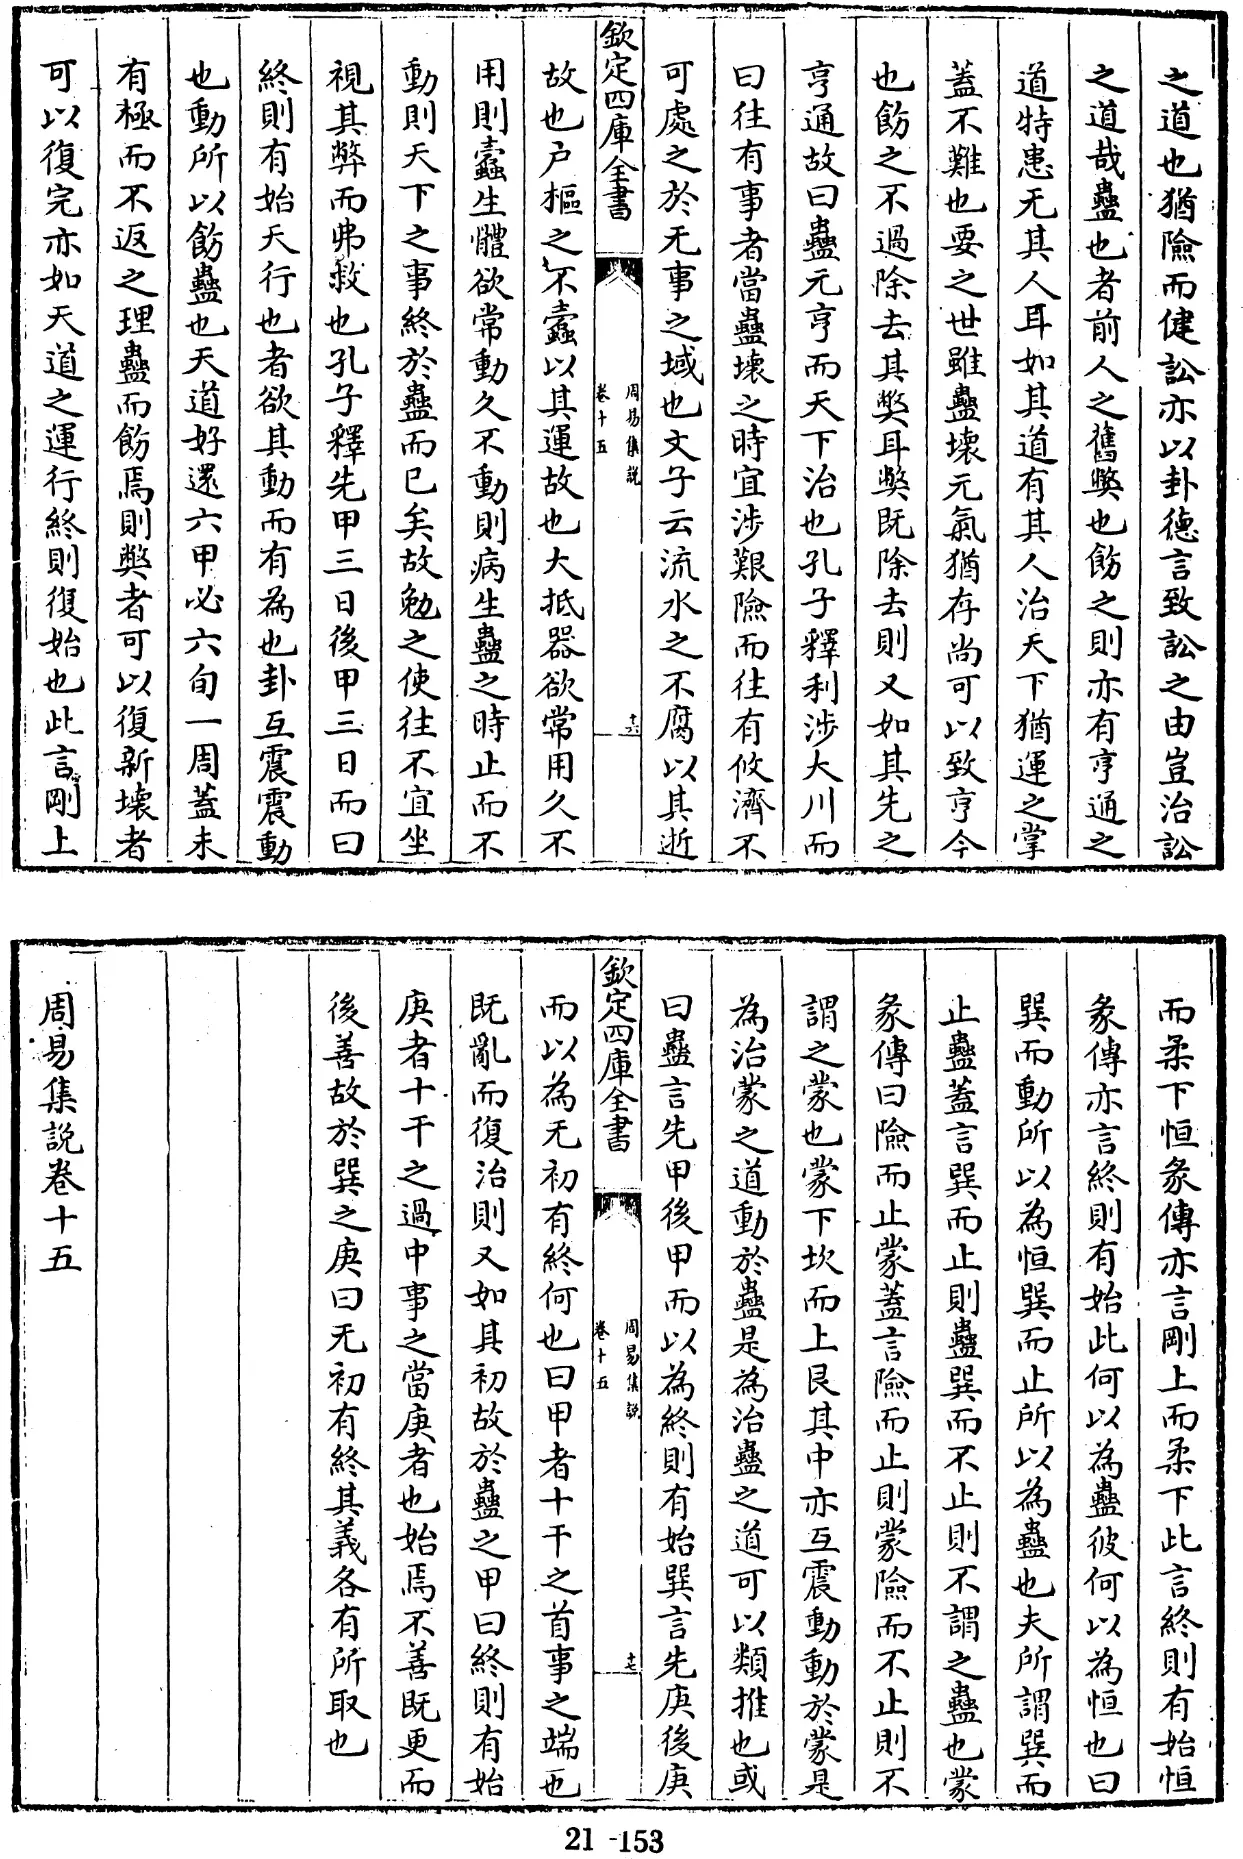 之道也猶險而健訟亦以卦德言致訟之由豈治訟
之道哉蠱也者前人之舊獘也飭之則亦有亨通之
道特患无其人耳如其道有其人治天下猶運之掌
蓋不難也要之世雖蠱壞元氣猶存尚可以致亨今
也飭之不過除去其獘耳獘既除去則又如其先之
亨通故曰蠱元亨而天下治也孔子釋利涉大川而
曰往有事者當蠱壞之時宜涉艱險而往有攸濟不
可處之於无事之域也文子云流水之不腐以其逝
欽定四庫全書
周易集說
卷十五
十六
故也户樞之不蠹以其運故也大抵器欲常用久不
用則蠹生體欲常動久不動則病生蠱之時止而不
動則天下之事終於蠱而已矣故勉之使往不宜坐
視其弊而弗救也孔子釋先甲三日後甲三日而曰
終則有始天行也者欲其動而有為也卦互震震動
也動所以飭蠱也天道好還六甲必六旬一周蓋未
有極而不返之理蠱而飭焉則獘者可以復新壞者
可以復完亦如天道之運行終則復始也此言剛上
而柔下恒彖傳亦言剛上而柔下此言終則有始恒
彖傳亦言終則有始此何以為蠱彼何以為恒也曰
巽而動所以為恒巽而止所以為蠱也夫所謂巽而
止蠱蓋言巽而止則蠱巽而不止則不謂之蠱也蒙
彖傳曰險而止蒙蓋言險而止則蒙險而不止則不
謂之蒙也蒙下坎而上艮其中亦互震動動於蒙是
為治蒙之道動於蠱是為治蠱之道可以類推也或
曰蠱言先甲後甲而以為終則有始巽言先庚後庚
欽定四庫全書
周易集說
卷十五
十七
而以為无初有終何也曰甲者十干之首事之端也
既亂而復治則又如其初故於蠱之甲曰終則有始
庚者十干之過中事之當庚者也始焉不善既更而
後善故於巽之庚曰无初有終其義各有所取也
周易集說卷十五
21-153